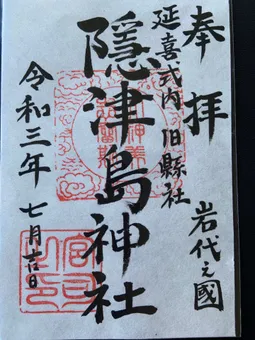 奉拝
岩代之國
延喜式内旧縣社
隠津島神社
令和三年七月吉日